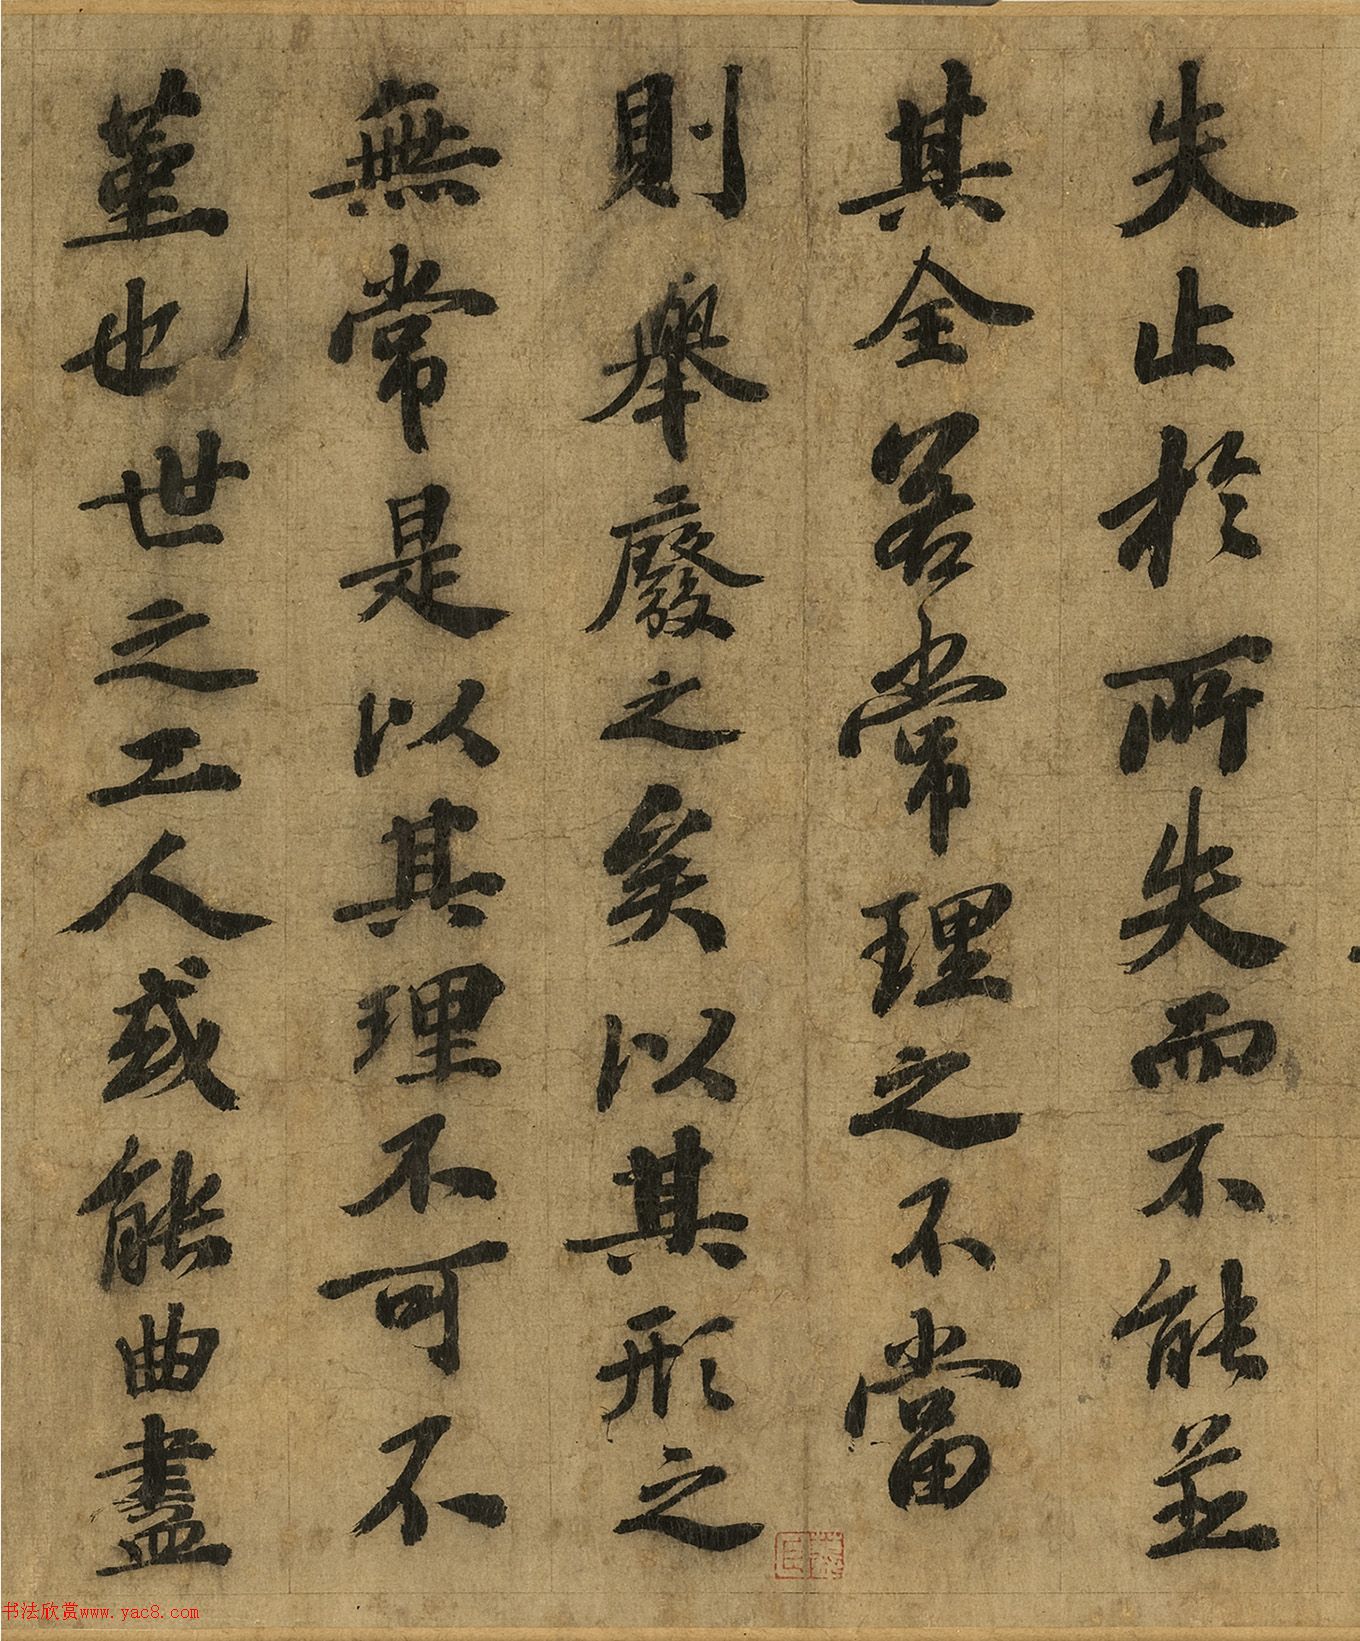 失止於所失而不能並
其全若常理之不當
則舉廢之矣以其形之
無常是以其理不可不
堇也世之工人或能曲盡
书法欣赏www.yac8.com